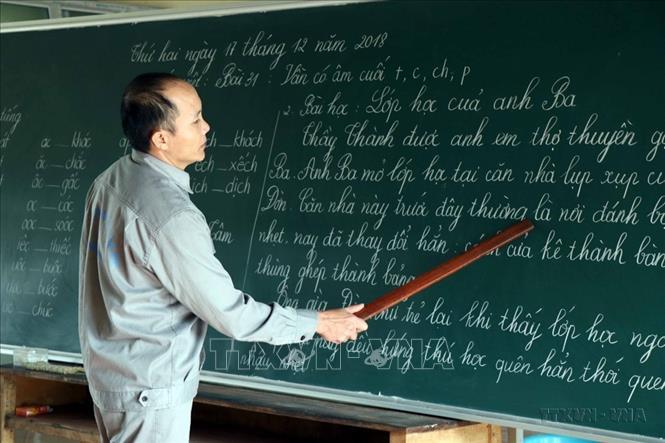 Thứ hai ngày 17 tháng 12 năm 2018
Bài 31 : Vần có âm cuối t, c, ch, p
tiếng
ac khác
ăc chắc
âc gấc
oc cóc
ooc xoóc
iêc thiếc
uôc buộc
ưc bực
uc chúc
ách khách
ếch xếch
ịch dịch
2. Bài học : Lớp học của anh Ba
Thầy Thành được anh em thợ thuyền gọ
Ba. Anh Ba mở lớp học tại căn nhà lụp xụp cu
Dòn. Căn nhà này trước đây thường là nơi đánh b
nhẹt. nay đã thay đổi hẳn : cánh cửa kê thành bàn
thùng ghép thành bảng.
Ông già thú kể lại khi thấy lớp học ngo
đều hứng thú học quên hẳn thói que
TTXVN-VNA
TTXVN-VNA